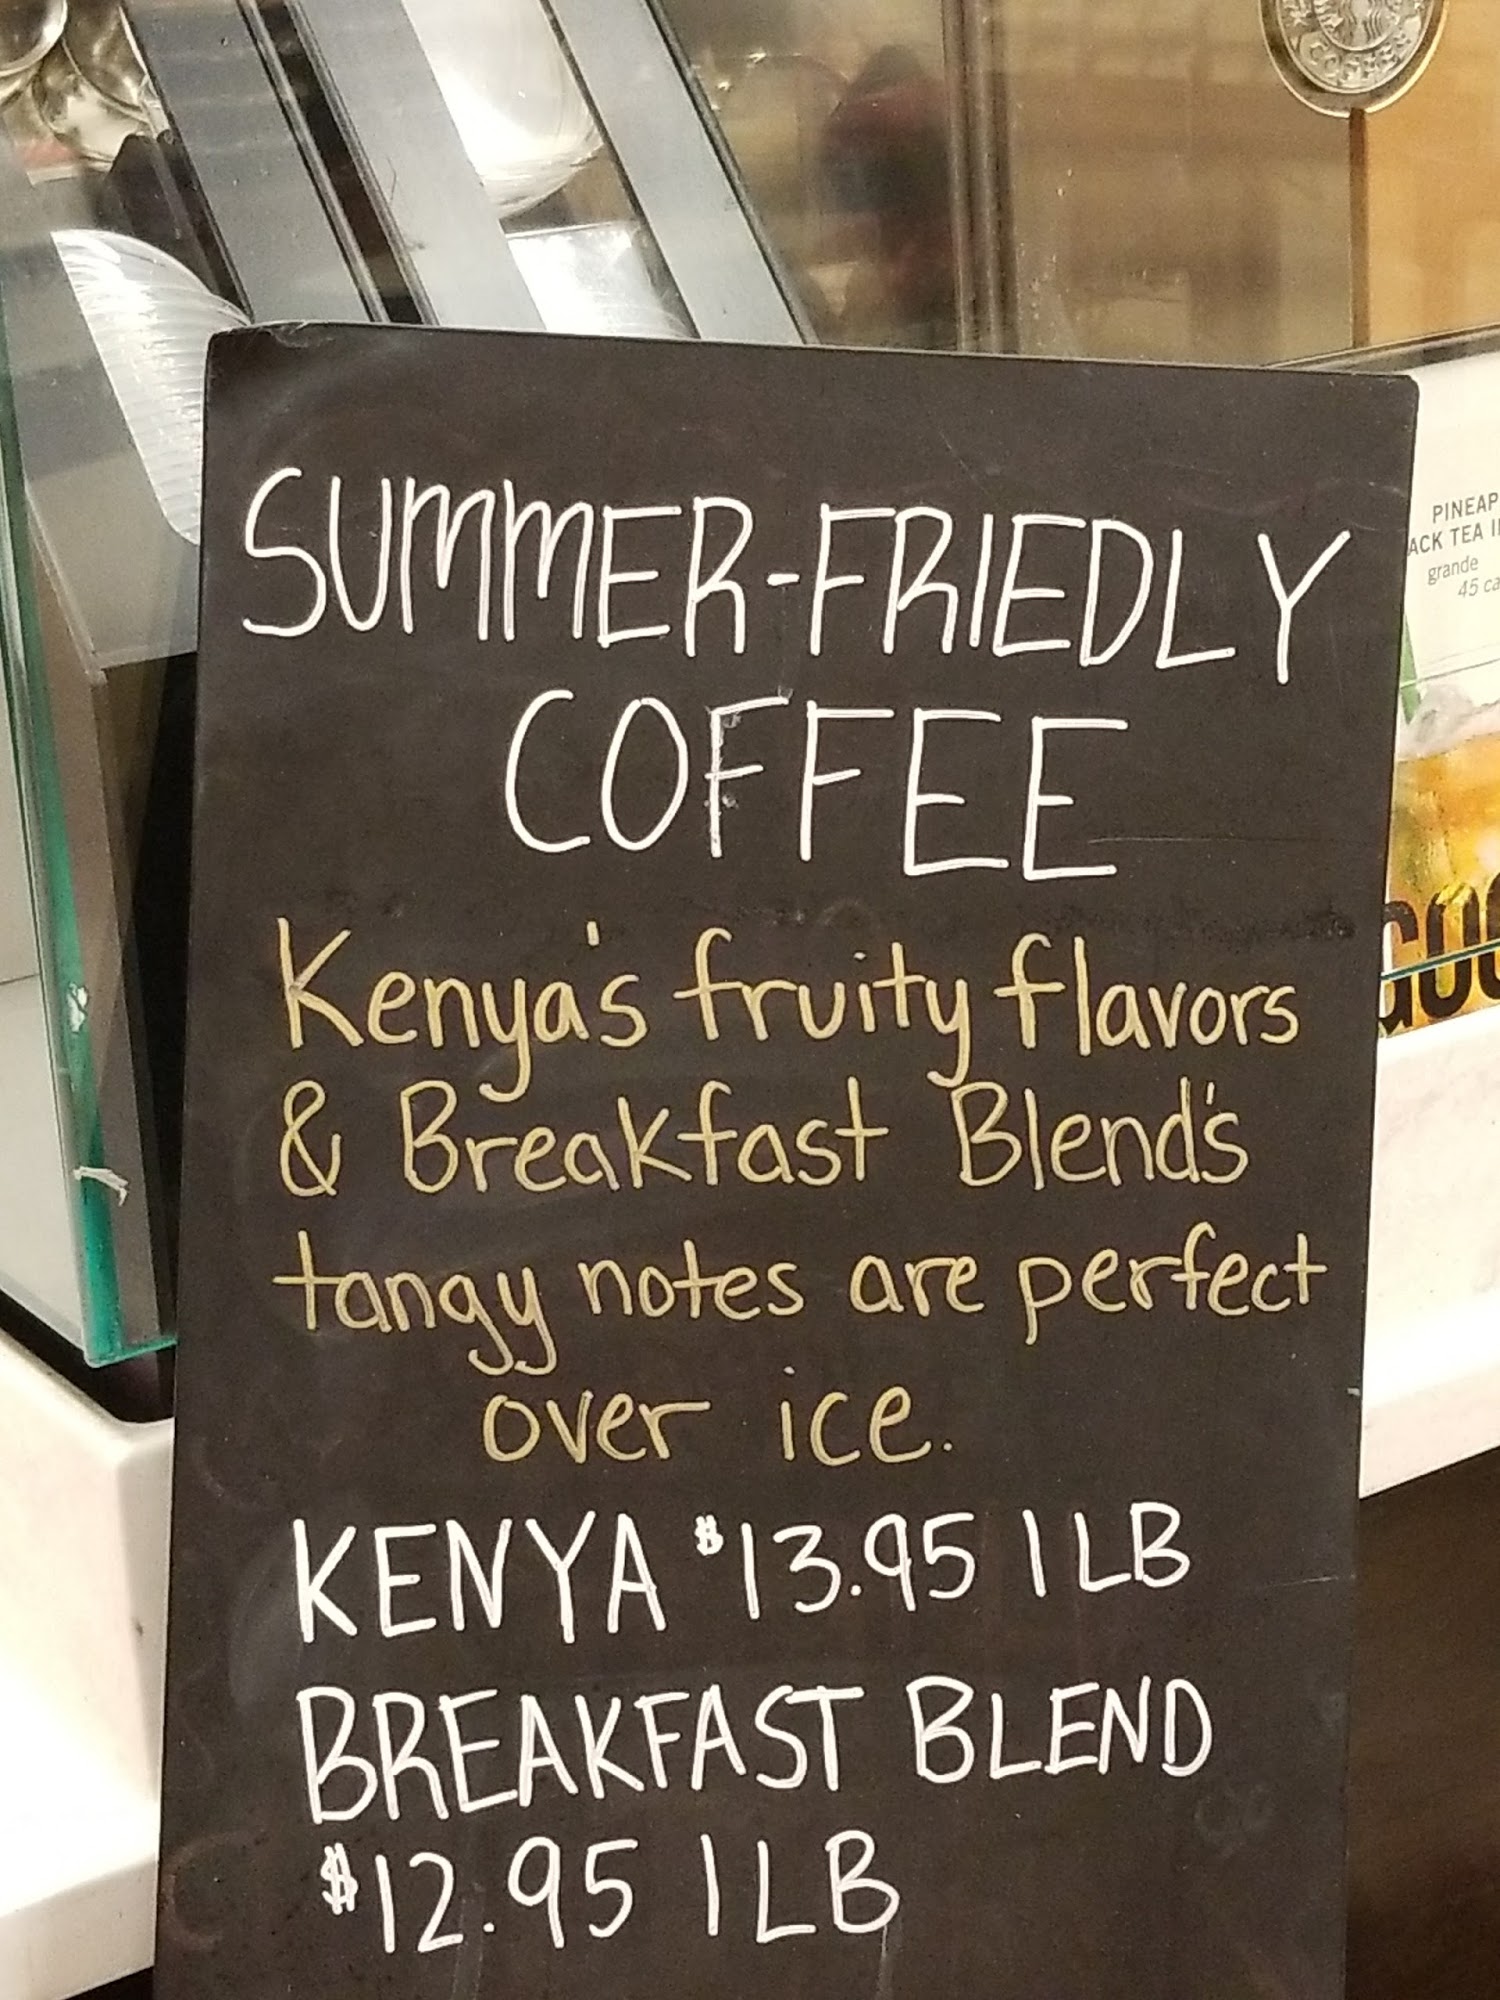 COFFEE
SUMMER-FRIEDLY
COFFEE
Kenya's fruity flavors
& Breakfast Blend's
tangy notes are perfect
over ice.
KENYA $13.95 1 LB
BREAKFAST BLEND
$12.95 1 LB
PINEAP
ACK TEA I
grande
45 ca